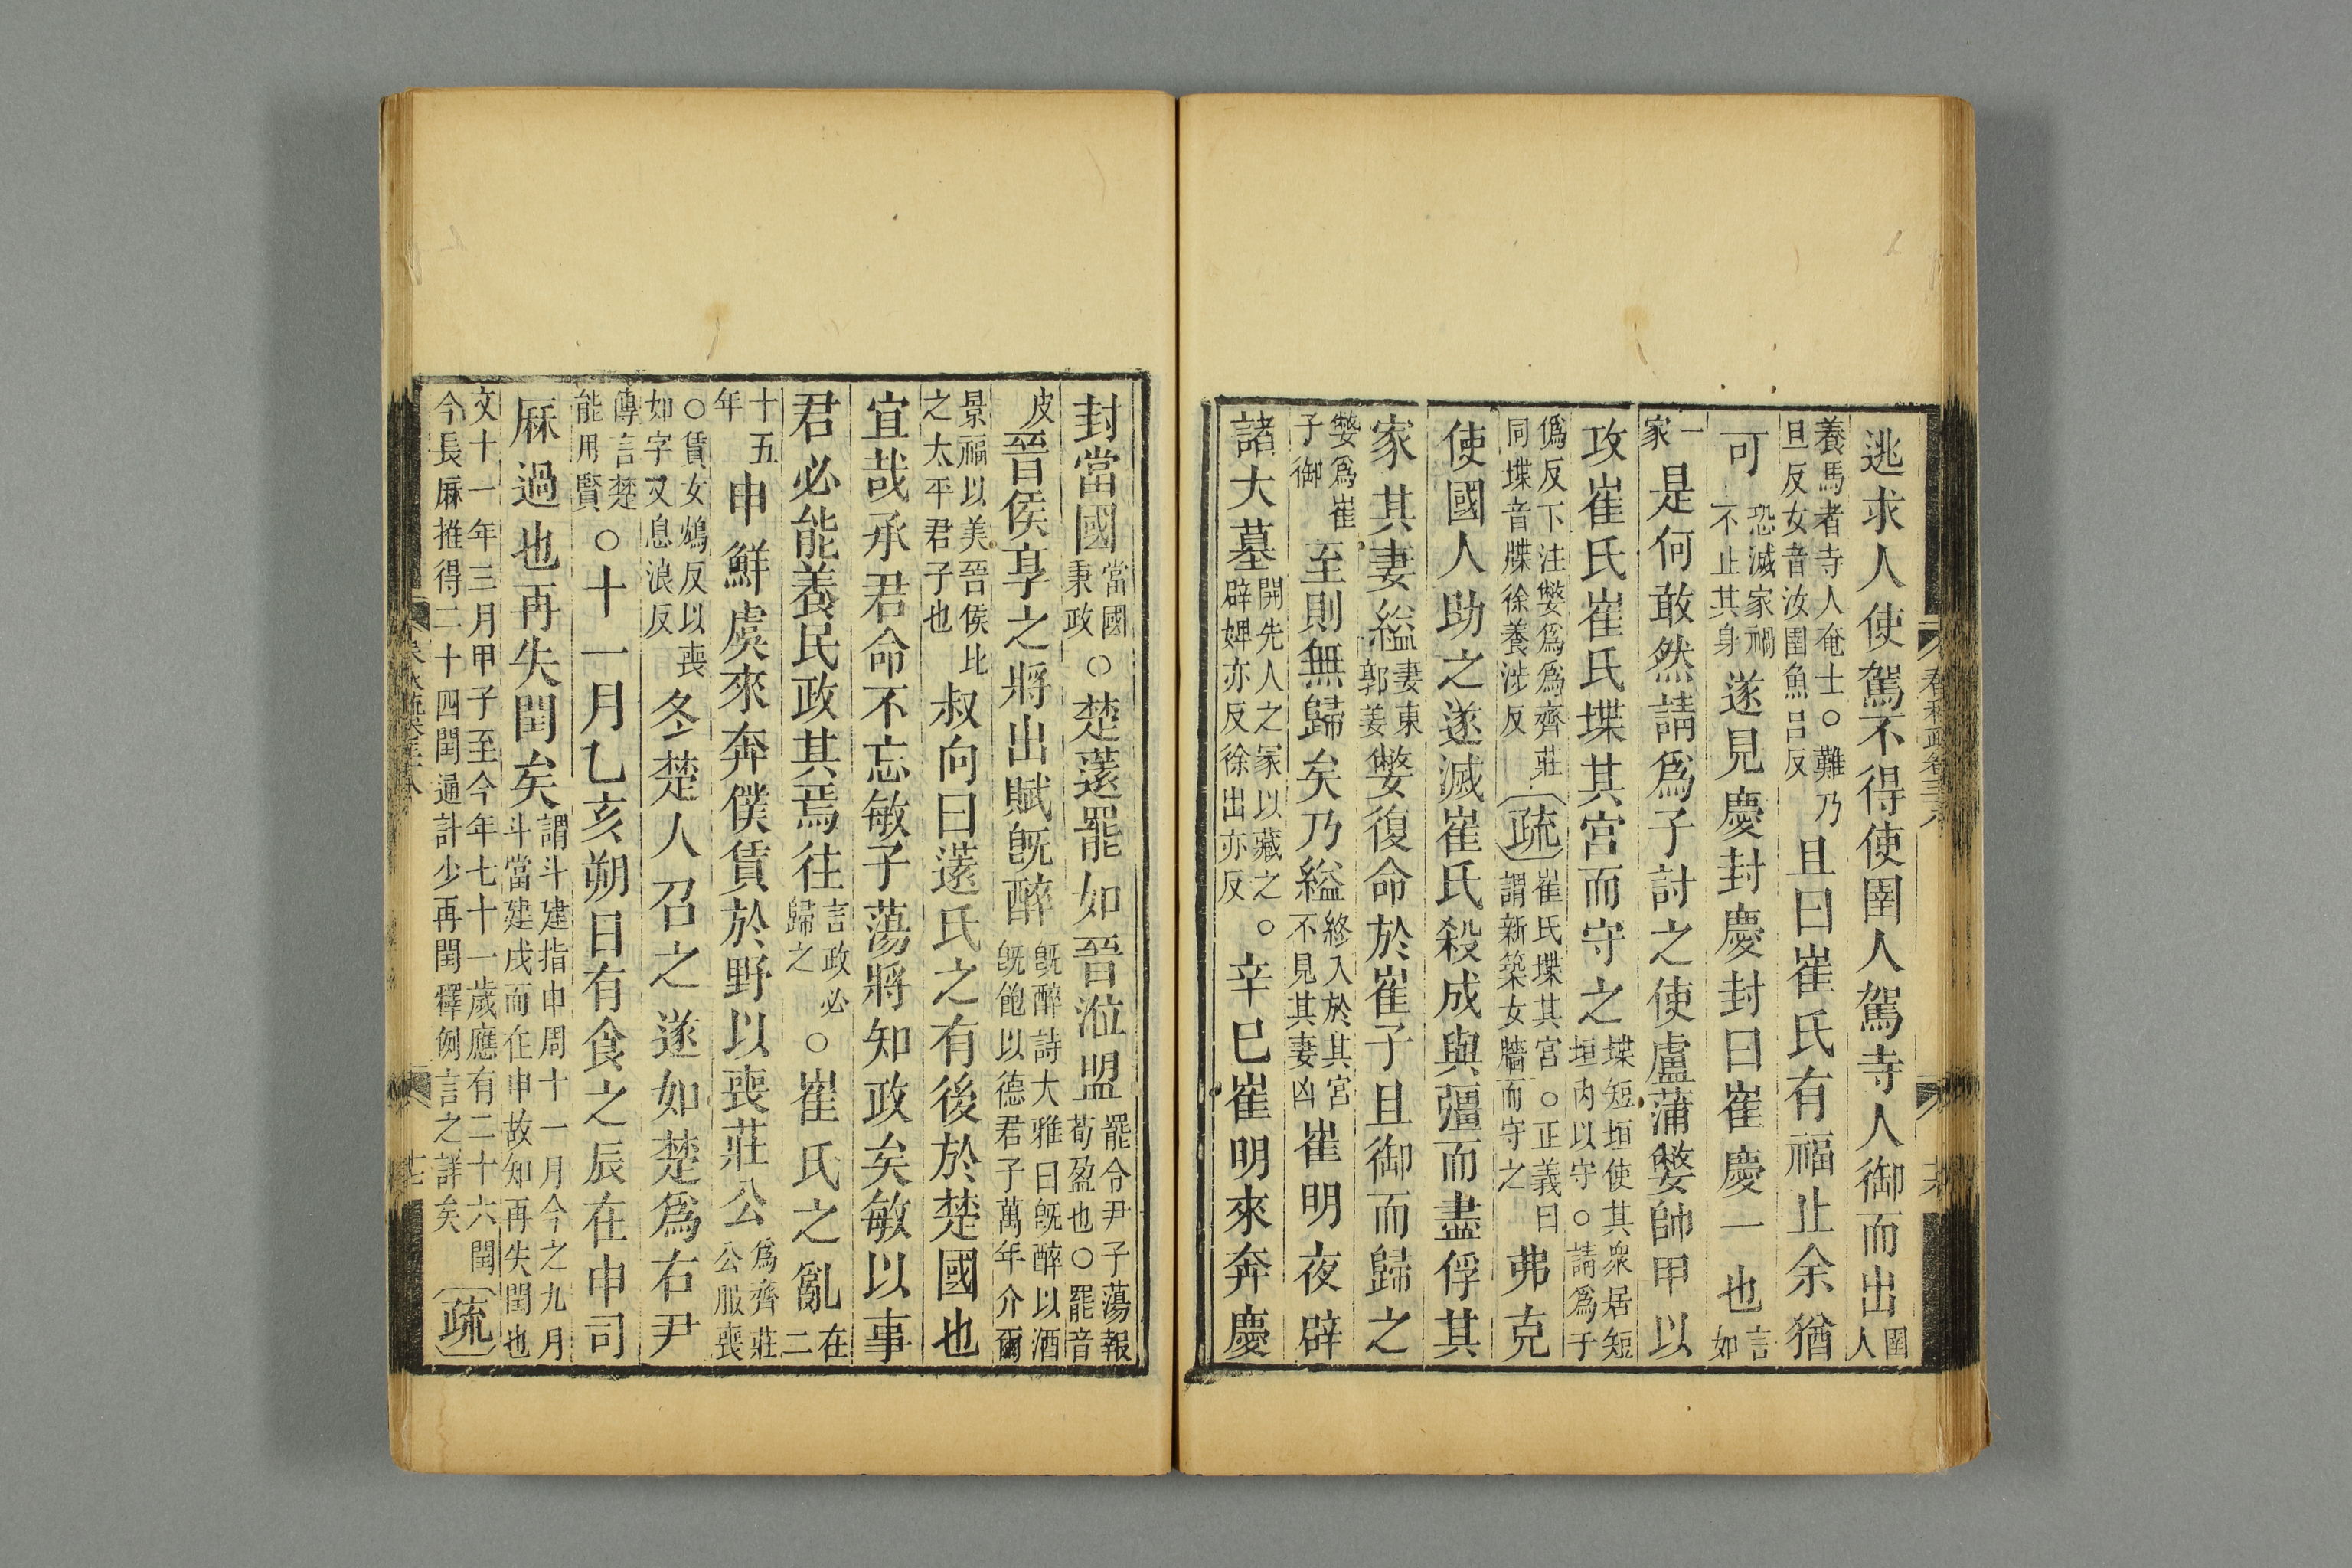 逃求人使駕不得使圉人駕寺人御而出圉人
養馬者寺人奄士○難乃旦反女音汝圉魚呂反且曰崔氏有福止余猶
可恐滅家禍不止其身遂見慶封慶封曰崔慶一也言如
一家是何敢然請爲子討之使盧蒲嫳帥甲以
攻崔氏崔氏堞其宮而守之堞短垣使其衆居短垣内以守○請爲于
僞反下注嫳爲爲齊莊同堞音牒徐養涉反疏崔氏堞其宮○正義曰謂新築女牆而守之弗克
使國人助之遂滅崔氏殺成與彊而盡俘其
家其妻縊妻東郭姜嫳復命於崔子且御而歸之
嫳爲崔子御至則無歸矣乃縊終入於其宮不見其妻凶崔明夜辟
諸大墓開先人之冢以藏之○辟婢亦反徐出亦反辛巳崔明來奔慶
封當國當國秉政○楚薳罷如晉涖盟罷令尹子蕩報荀盈也○罷音
皮晉侯享之將出賦旣醉旣醉詩大雅曰旣醉以酒旣飽以德君子萬年介爾
景福以美晉侯比之太平君子也叔向曰薳氏之有後於楚國也
宜哉承君命不忘敏子蕩將知政矣敏以事
君必能養民政其焉往言政必歸之○崔氏之亂在二
十五年申鮮虞來奔僕賃於野以喪莊公爲齊莊公服喪
○賃女鴆反以喪如字又息浪反冬楚人召之遂如楚爲右尹
傳言楚能用賢○十一月乙亥朔日有食之辰在申司
厤過也再失閏矣謂斗建指申周十一月今之九月斗當建戌而在申故知再失閏也
文十一年三月甲子至今年七十一歲應有二十六閏今長厤推得二十四閏通計少再閏釋例言之詳矣疏